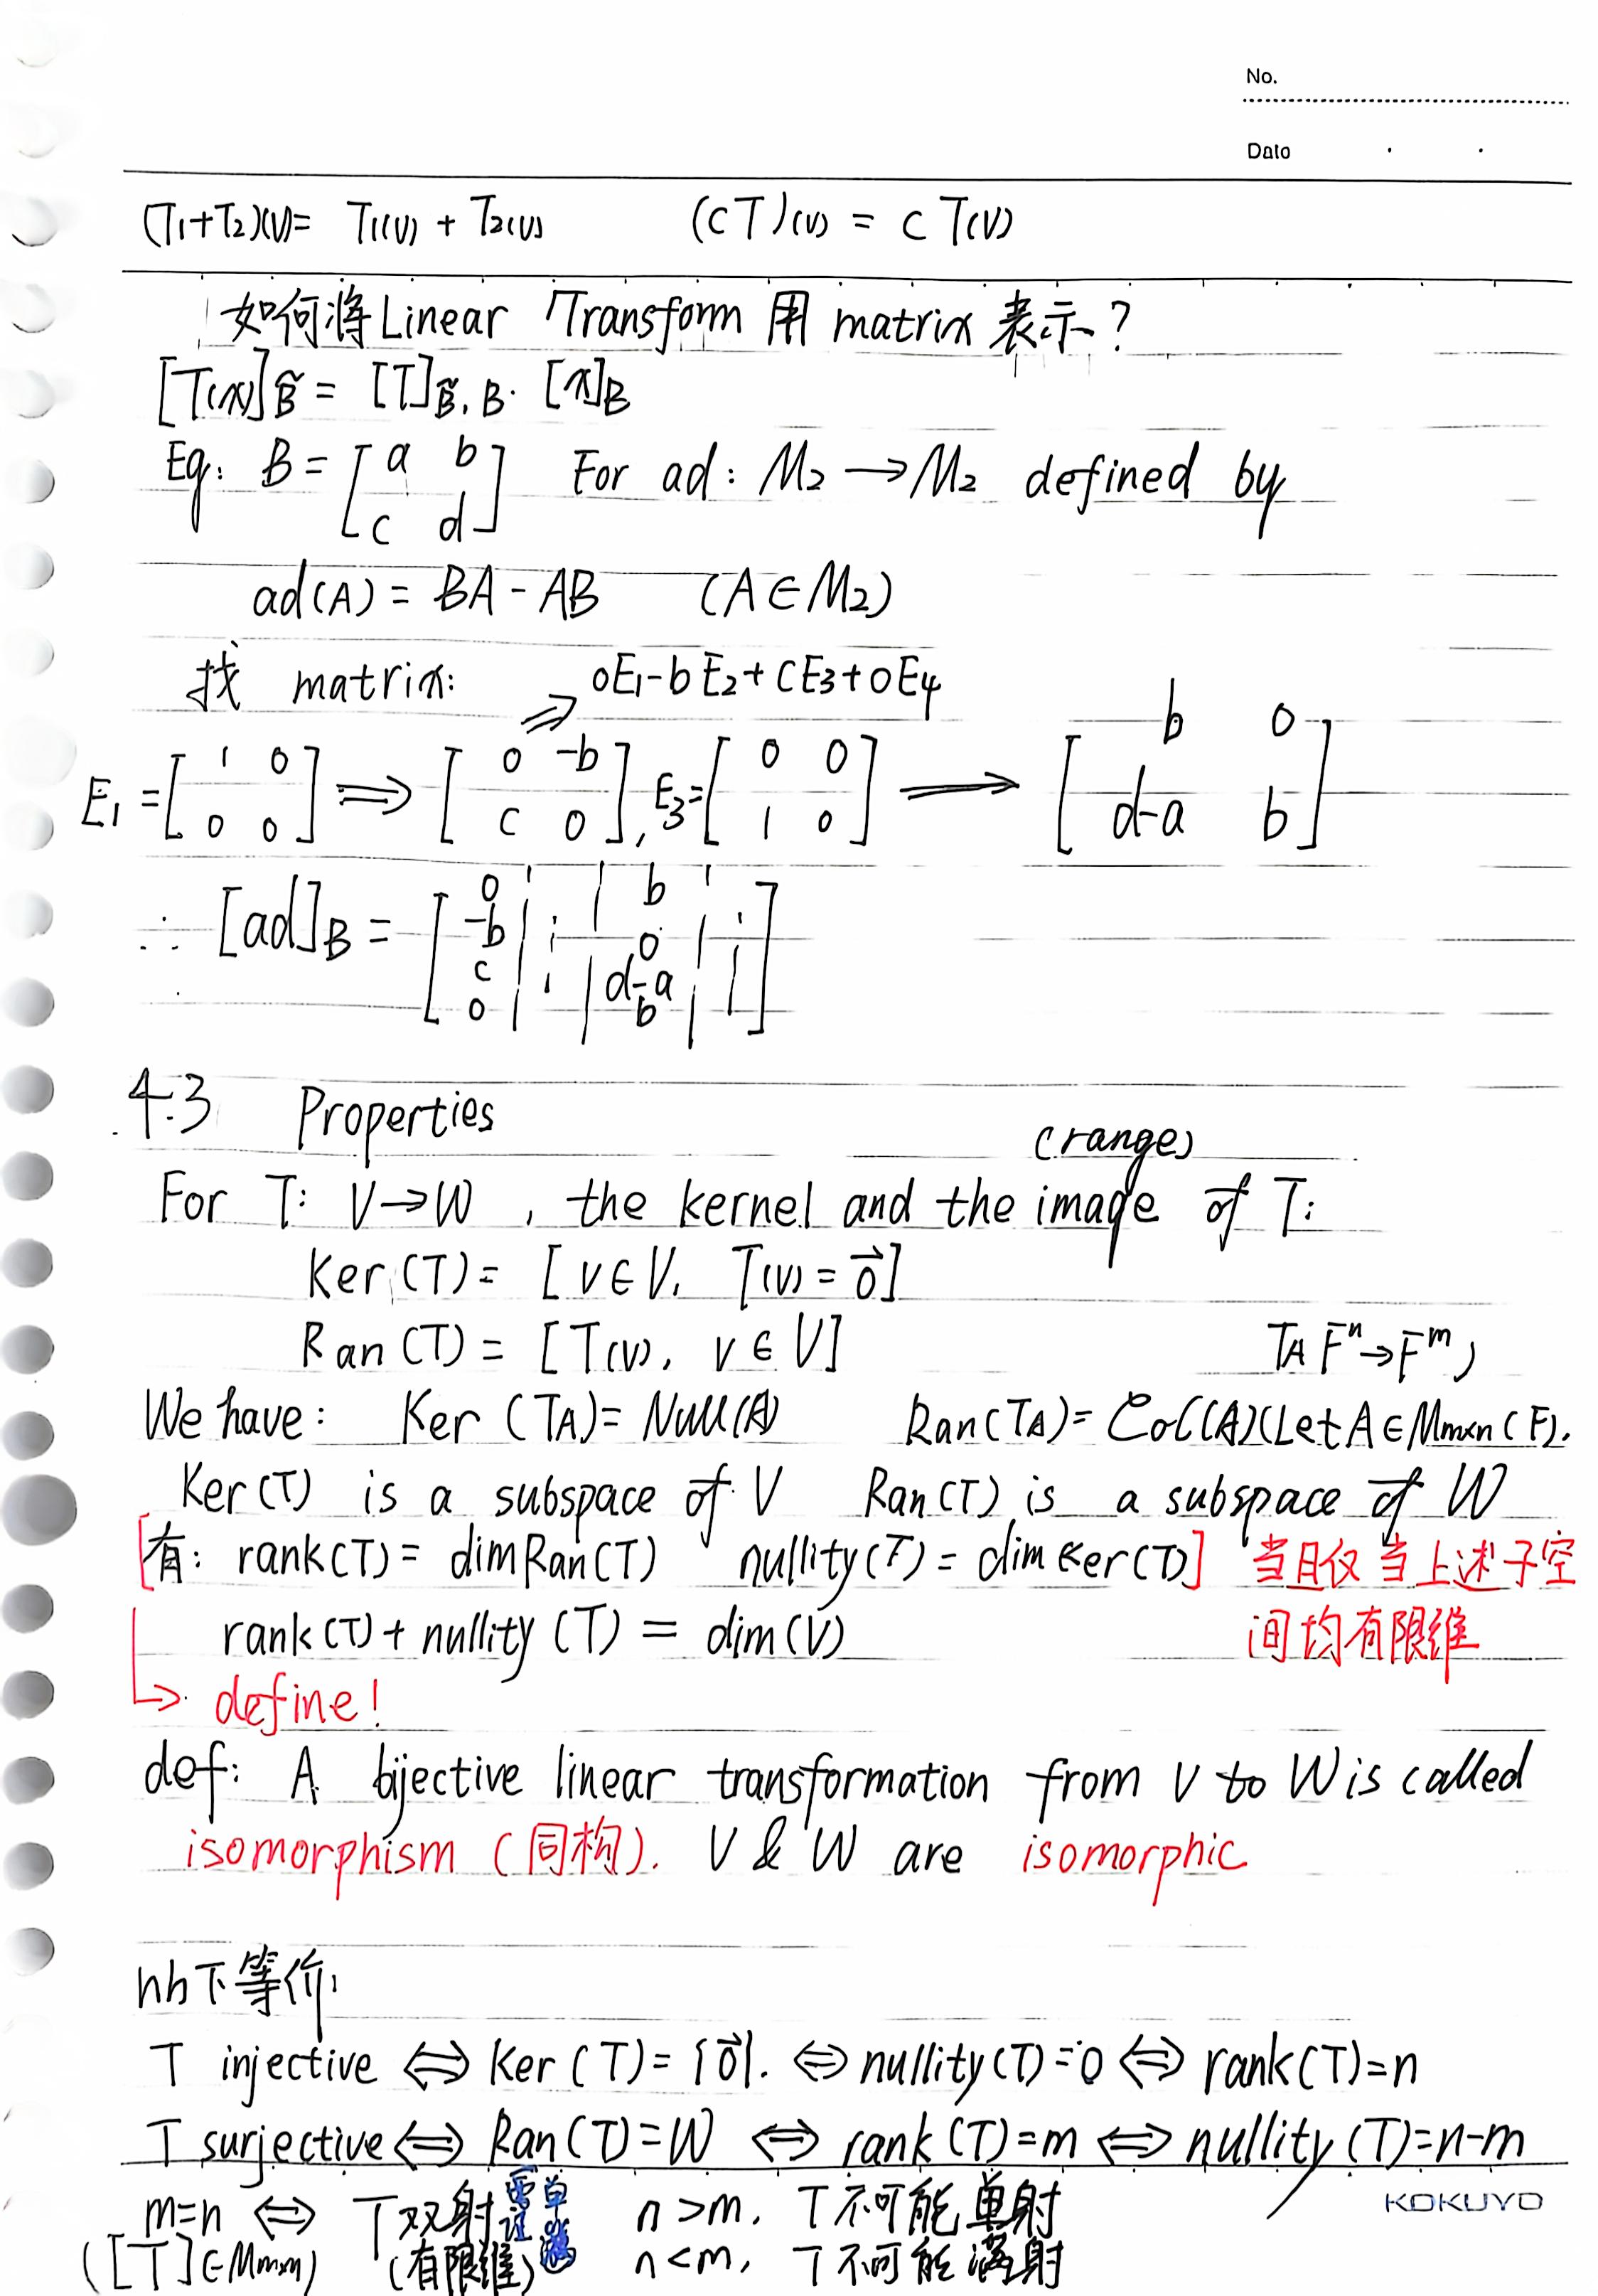 No.
Date
(T₁+T₂)(v)= T₁(v) + T₂(v) (cT)(v) = c T(v)
如何将Linear Transform 用 matrix 表示?
[T(x)]B̃ = [T]B̃,B · [x]B
Eg: B = [a b; c d] For ad: M₂ → M₂ defined by
ad(A) = BA - AB (A ∈ M₂)
找 matrix: ⇒ 0E₁-bE₂+cE₃+0E₄
E₁ = [1 0; 0 0] ⇒ [0 -b; c 0], E₃=[0 0; 1 0] → [b 0; d-a b]
∴ [ad]B = [0 -b c 0 | ⋮ | b 0 d-a b | ⋮]
4.3 Properties
(range)
For T: V→W , the kernel and the image of T:
Ker(T) = [v∈V, T(v) = 0⃗]
Ran(T) = [T(v), v ∈ V] TA Fⁿ→Fᵐ)
We have: Ker (TA)= Null(A) Ran(TA)= Col(A)(Let A∈Mmxn(F).
Ker(T) is a subspace of V Ran(T) is a subspace of W
[有: rank(T) = dimRan(T) nullity(T) = dimKer(T)] 当且仅当上述子空
rank(T) + nullity(T) = dim(V) 间均有限维
↳ define!
def: A bijective linear transformation from V to W is called
isomorphism (同构). V & W are isomorphic
下等价:
T injective ⇔ Ker(T)={0⃗}. ⇔ nullity(T)=0 ⇔ rank(T)=n
T surjective ⇔ Ran(T)=W ⇔ rank(T)=m ⇔ nullity(T)=n-m
m=n ⇔ T双射 需证单满 n>m, T不可能单射
([T]∈Mmxn) (有限维) n<m, T不可能满射
KOKUYO